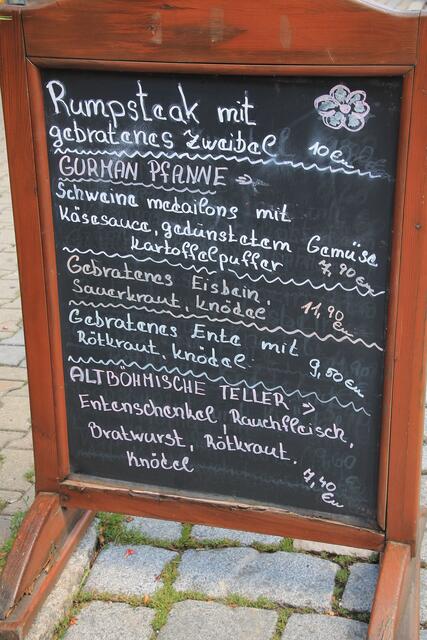 Rumpsteak mit
gebratenes Zweibel 10 Eu
GURMAN PFANNE →
Schweine medailons mit
Käsesauce, gedünstetem Gemüse
Kartoffelpuffer 7,90 Eu
Gebratenes Eisbein,
Sauerkraut, Knödel 11,90 Eu
Gebratenes Ente mit
Rötkraut, Knödel 9,50 Eu
ALTBÖHMISCHE TELLER →
Entenschenkel, Rauchfleisch,
Bratwurst, Rötkraut,
Knödel 7,40 Eu